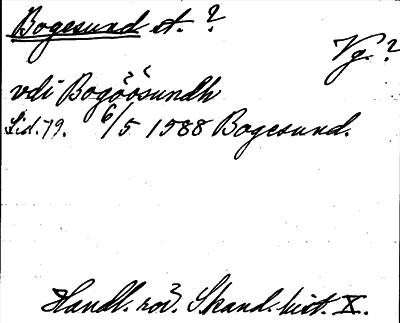 Bogesund st. ?
Vg. ?
vdi Bogöösundh
Sid. 79. 6/5 1588 Bogesund.
Handl. rör. Skand. hist. X.